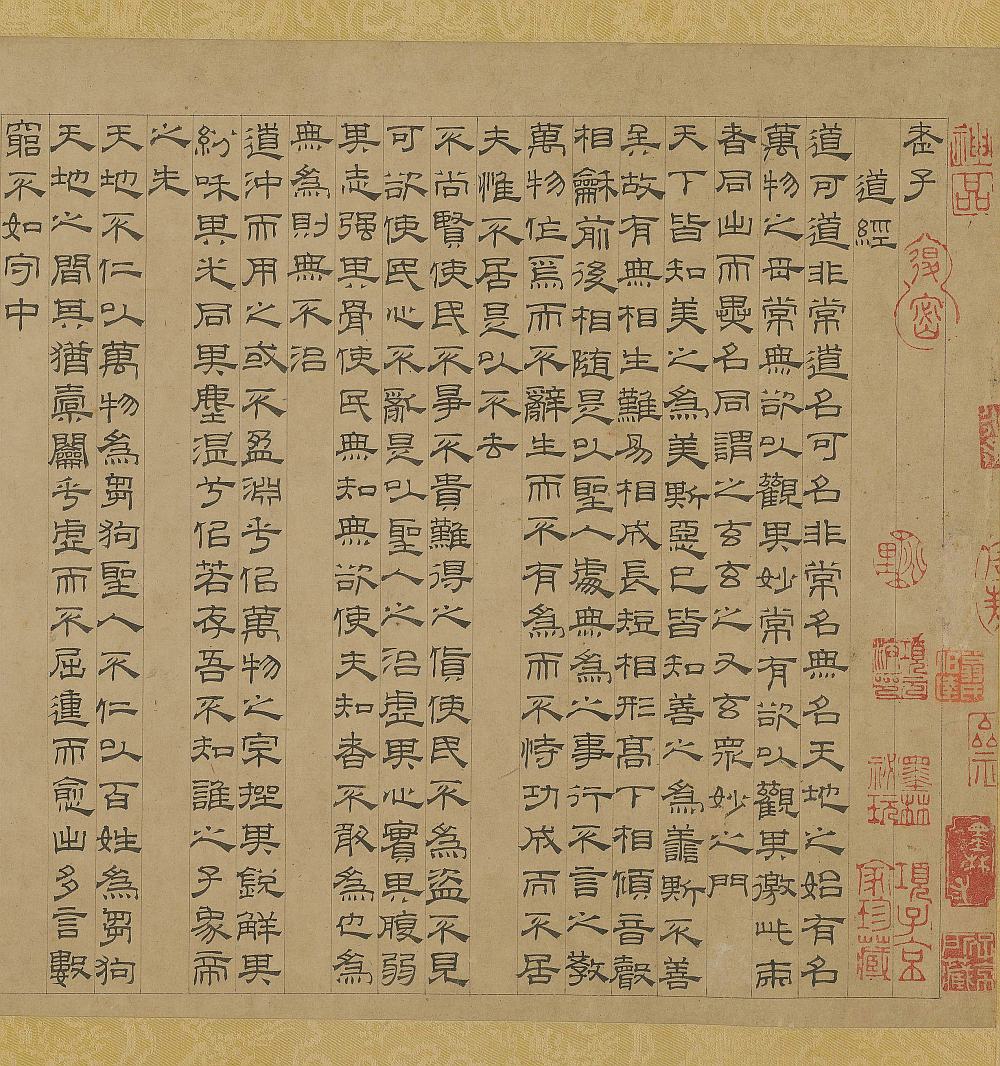 神品
老子
道經
道可道非常道名可名非常名無名天地之始有名
萬物之母常無欲以觀其妙常有欲以觀其徼此兩
者同出而異名同謂之玄玄之又玄衆妙之門
天下皆知美之為美斯惡已皆知善之為善斯不善
矣故有無相生難易相成長短相形髙下相傾音聲
相龢前後相隨是以聖人處無為之事行不言之教
萬物作焉而不辭生而不有為而不恃功成而不居
夫惟不居是以不去
不尚賢使民不爭不貴難得之貨使民不為盜不見
可欲使民心不亂是以聖人之治虛其心實其腹弱
其志强其骨使民無知無欲使夫知者不敢為也為
無為則無不治
道沖而用之或不盈淵乎佀萬物之宗挫其銳解其
紛咊其光同其塵湛兮佀若存吾不知誰之子象帝
之先
天地不仁以萬物為芻狗聖人不仁以百姓為芻狗
天地之間其猶橐籥乎虛而不屈動而愈出多言數
窮不如守中
項元汴印
墨林祕玩
項子京家珍藏